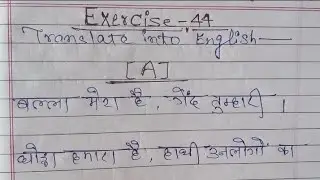 Exercise-44
Translate into English—
[A]
बल्ला मेरा है, गेंद तुम्हारी ।
घोड़ा हमारा है, हाथी उनलोगों का